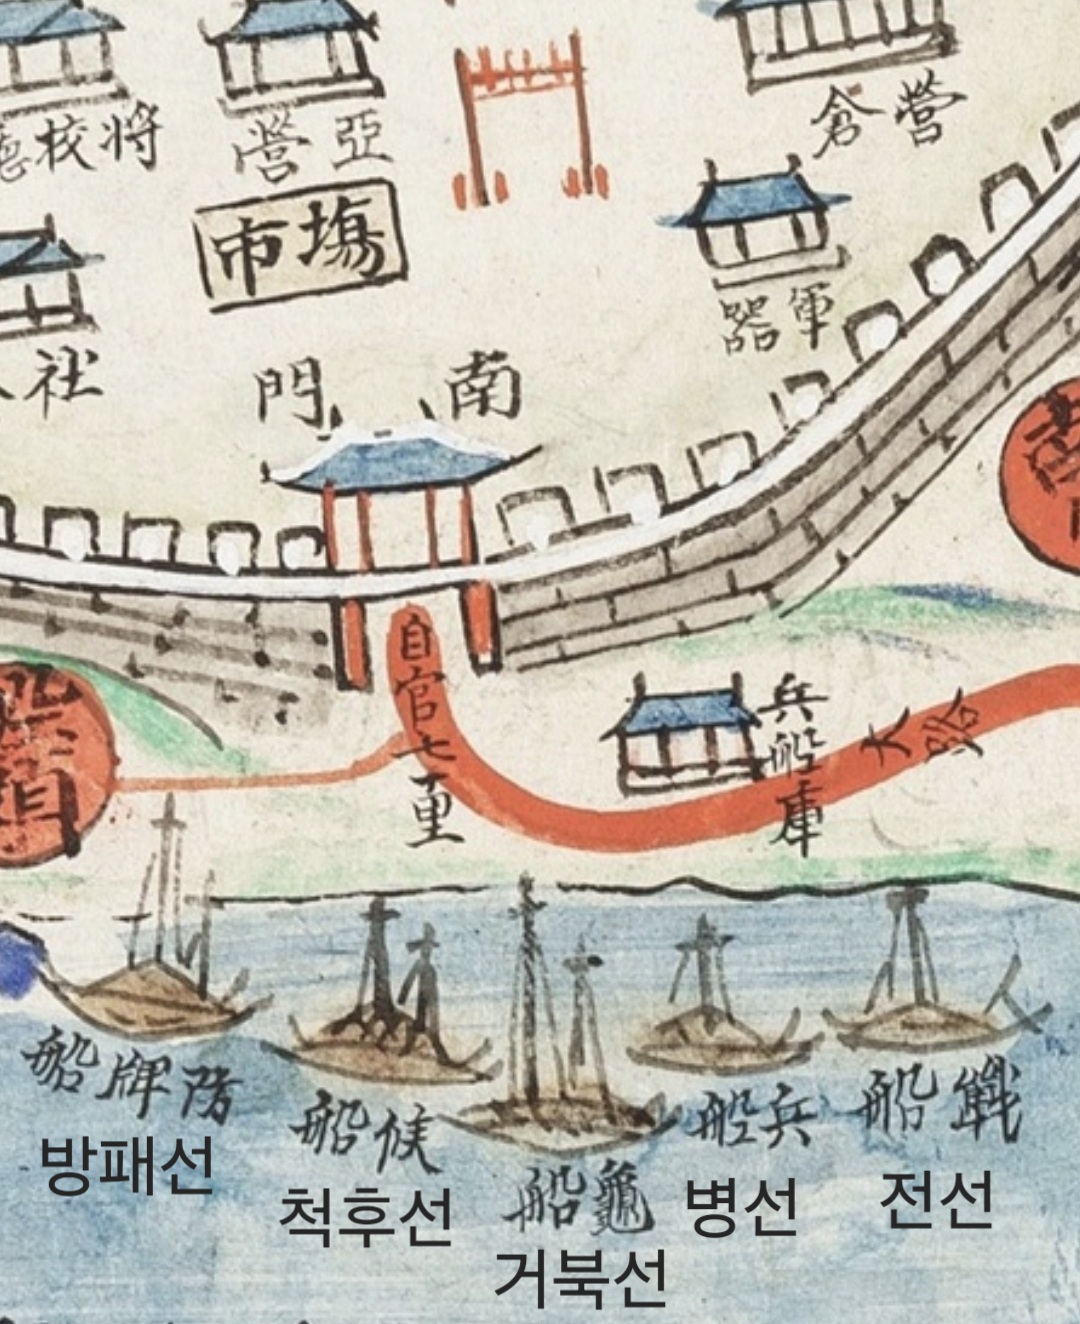 將校
亞營
營倉
市場
軍器
社
南門
自官七里
兵船庫
大路
防牌船
방패선
候船
척후선
龜船
거북선
兵船
병선
戰船
전선